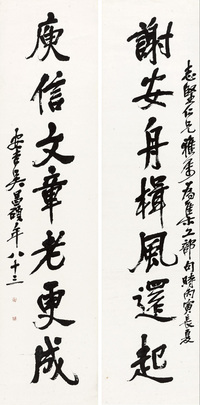 謝安舟楫風還起
志堅仁兄雅屬為集工部句時丙寅長夏
庾信文章老更成
安吉吳昌碩年八十三